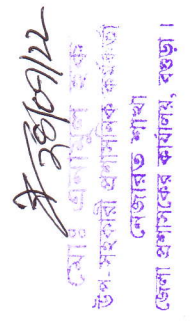 ২৪/০৭/২২
মোঃ এনামুল হক
উপ-সহকারী প্রশাসনিক কর্মকর্তা
নেজারত শাখা
জেলা প্রশাসকের কার্যালয়, বগুড়া।